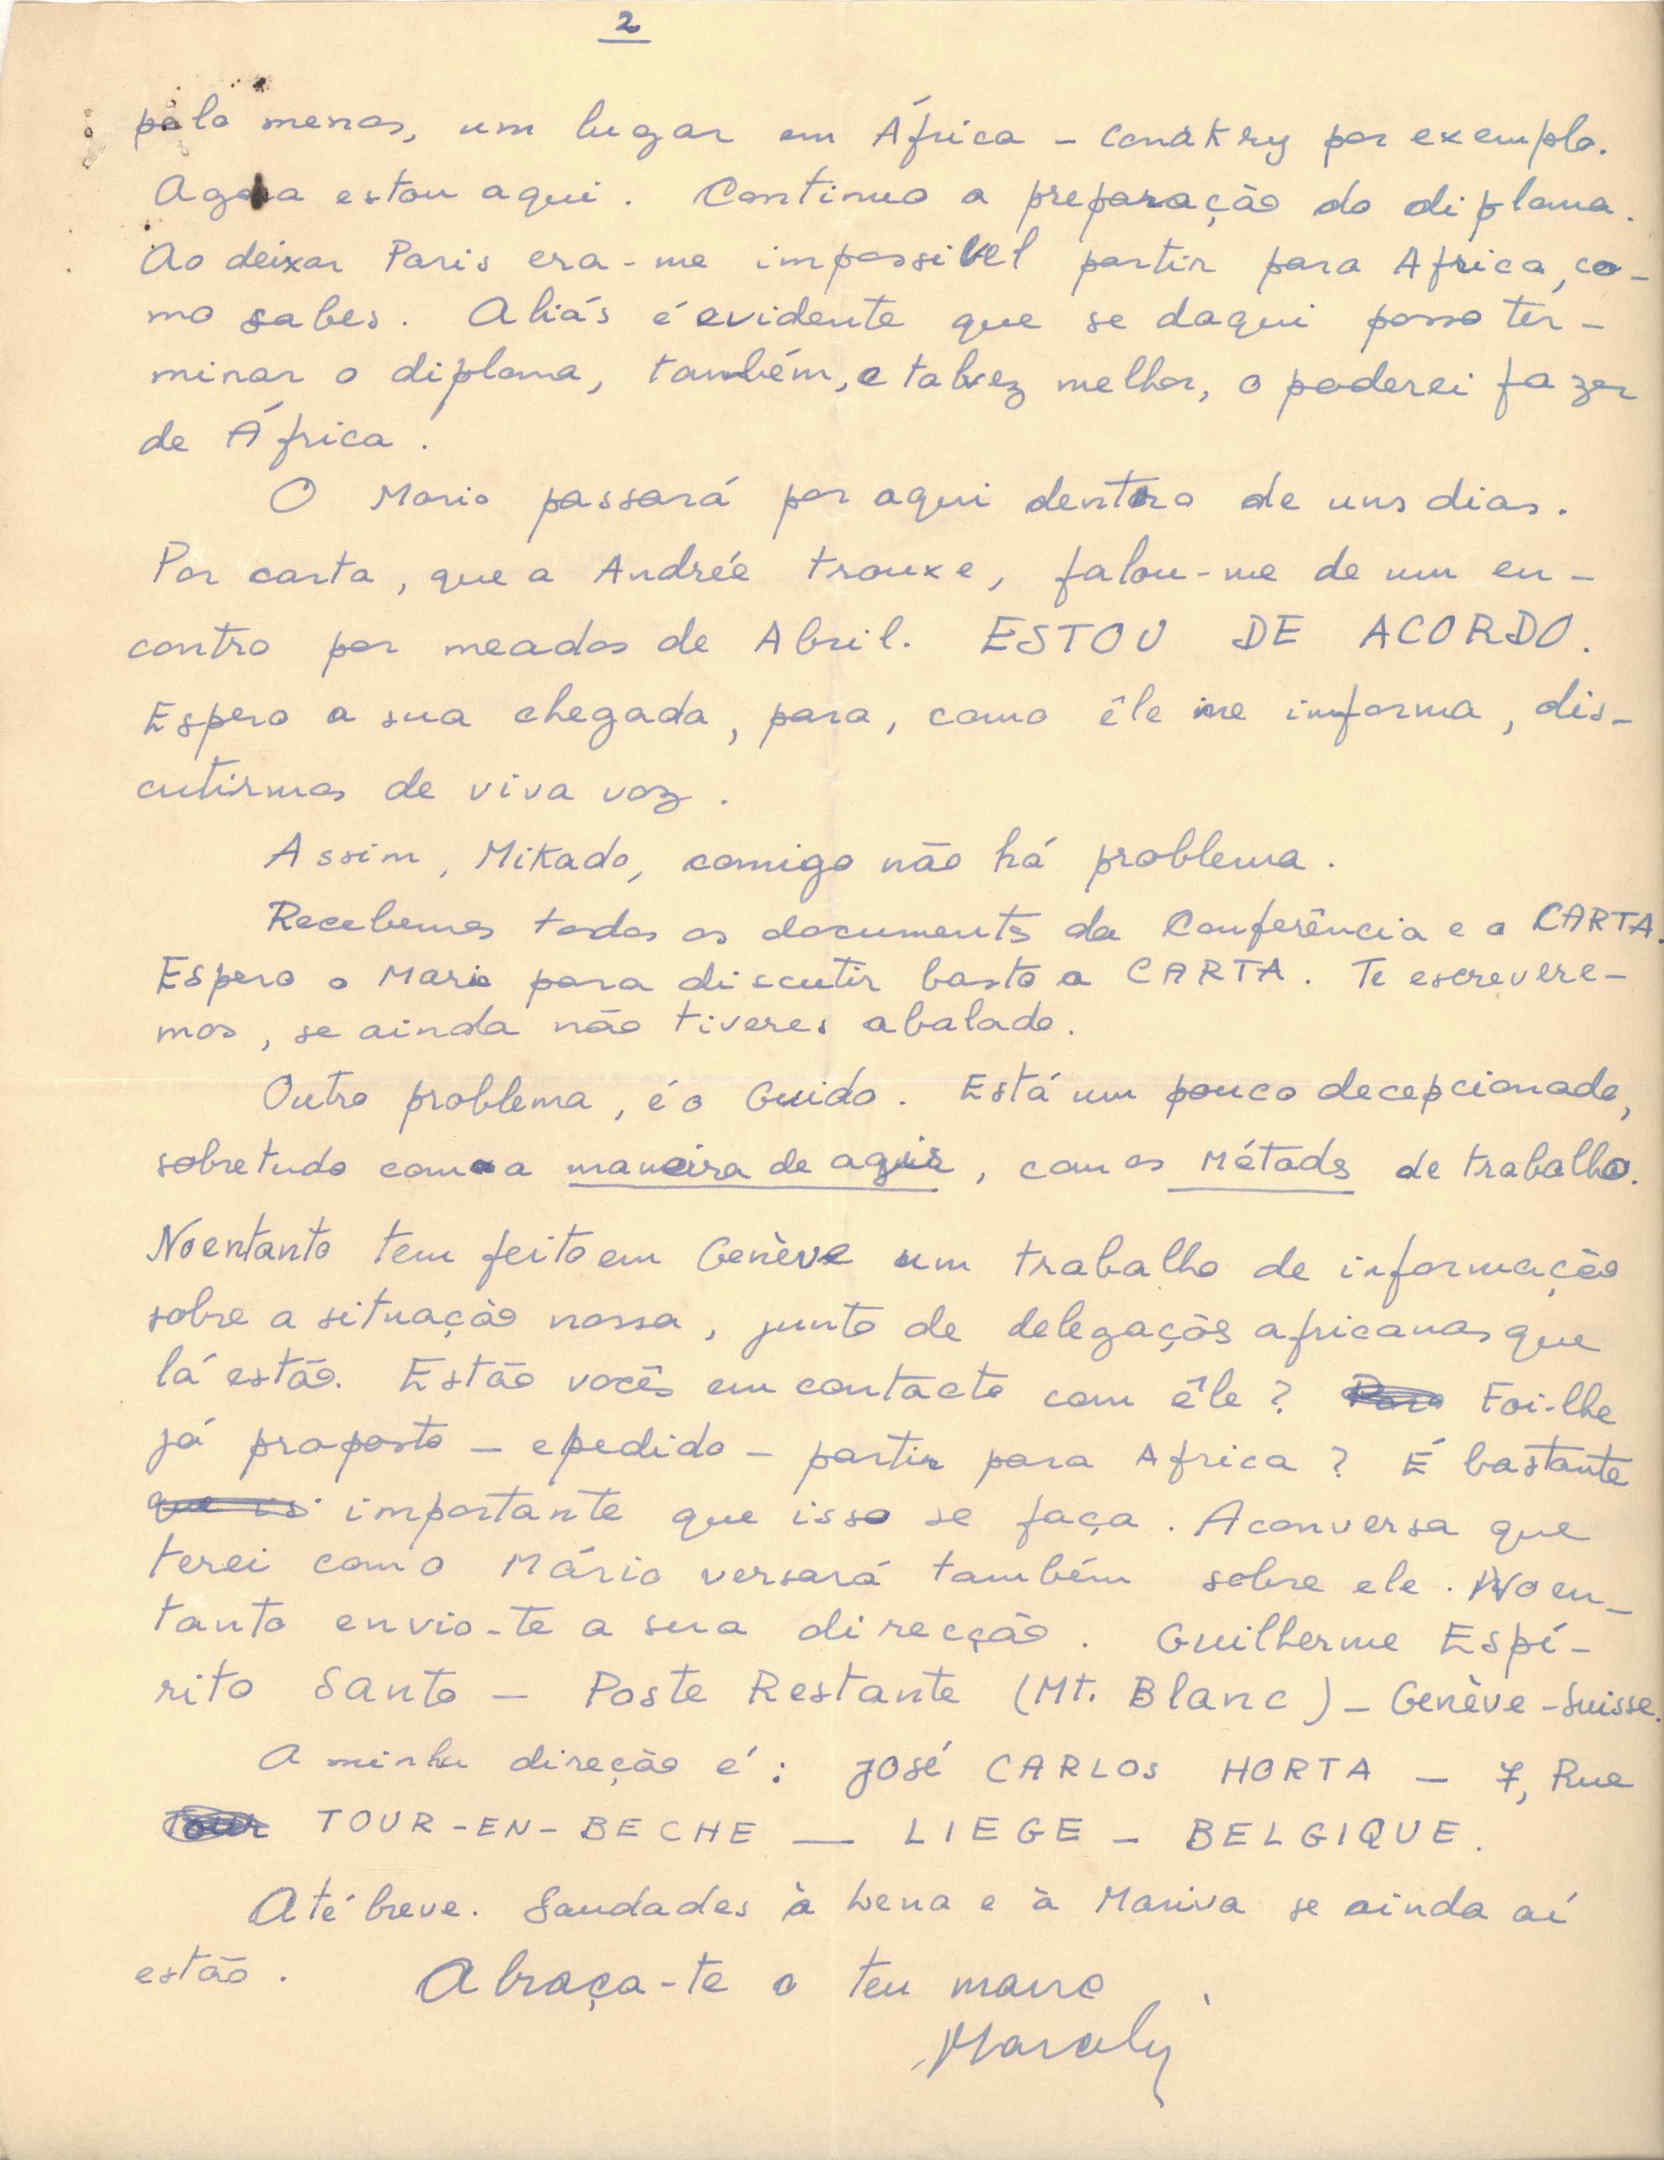 2
pelo menos, um lugar em África – Conakry por exemplo.
Agora estou aqui. Continuo a preparação do diploma.
Ao deixar Paris era-me impossivel partir para Africa, co-
mo sabes. Aliás é evidente que se daqui posso ter-
minar o diploma, também, e talvez melhor, o poderei fazer
de África.
O Mario passará por aqui dentro de uns dias.
Por carta, que a Andrée trouxe, falou-me de um en-
contro por meados de Abril. ESTOU DE ACORDO.
Espero a sua chegada, para, como êle me informa, dis-
cutirmos de viva voz.
Assim, Mikado, comigo não há problema.
Recebemos todos os documents da Conferência e a CARTA.
Espero o Mario para discutir basto a CARTA. Te escrevere-
mos, se ainda não tiveres abalado.
Outro problema, é o Guido. Está um pouco decepcionado,
sobretudo com a maneira de agir, com os Métods de trabalho.
No entanto tem feito em Genève um trabalho de informação
sobre a situação nossa, junto de delegaçõs africanas que
lá estão. Estão vocês em contacto com êle? Para Foi-lhe
já proposto – e pedido – partir para Africa? É bastante
que is importante que isso se faça. A conversa que
terei com o Mário versará também sobre ele. No en-
tanto envio-te a sua direcção. Guilherme Espí-
rito Santo – Poste Restante (Mt. Blanc) – Genève – Suisse.
A minha direção é: JOSÉ CARLOS HORTA – 7, Rue
Tour TOUR-EN-BECHE — LIEGE – BELGIQUE.
Até breve. Saudades à Lena e à Mariva se ainda aí
estão. Abraça-te o teu mano